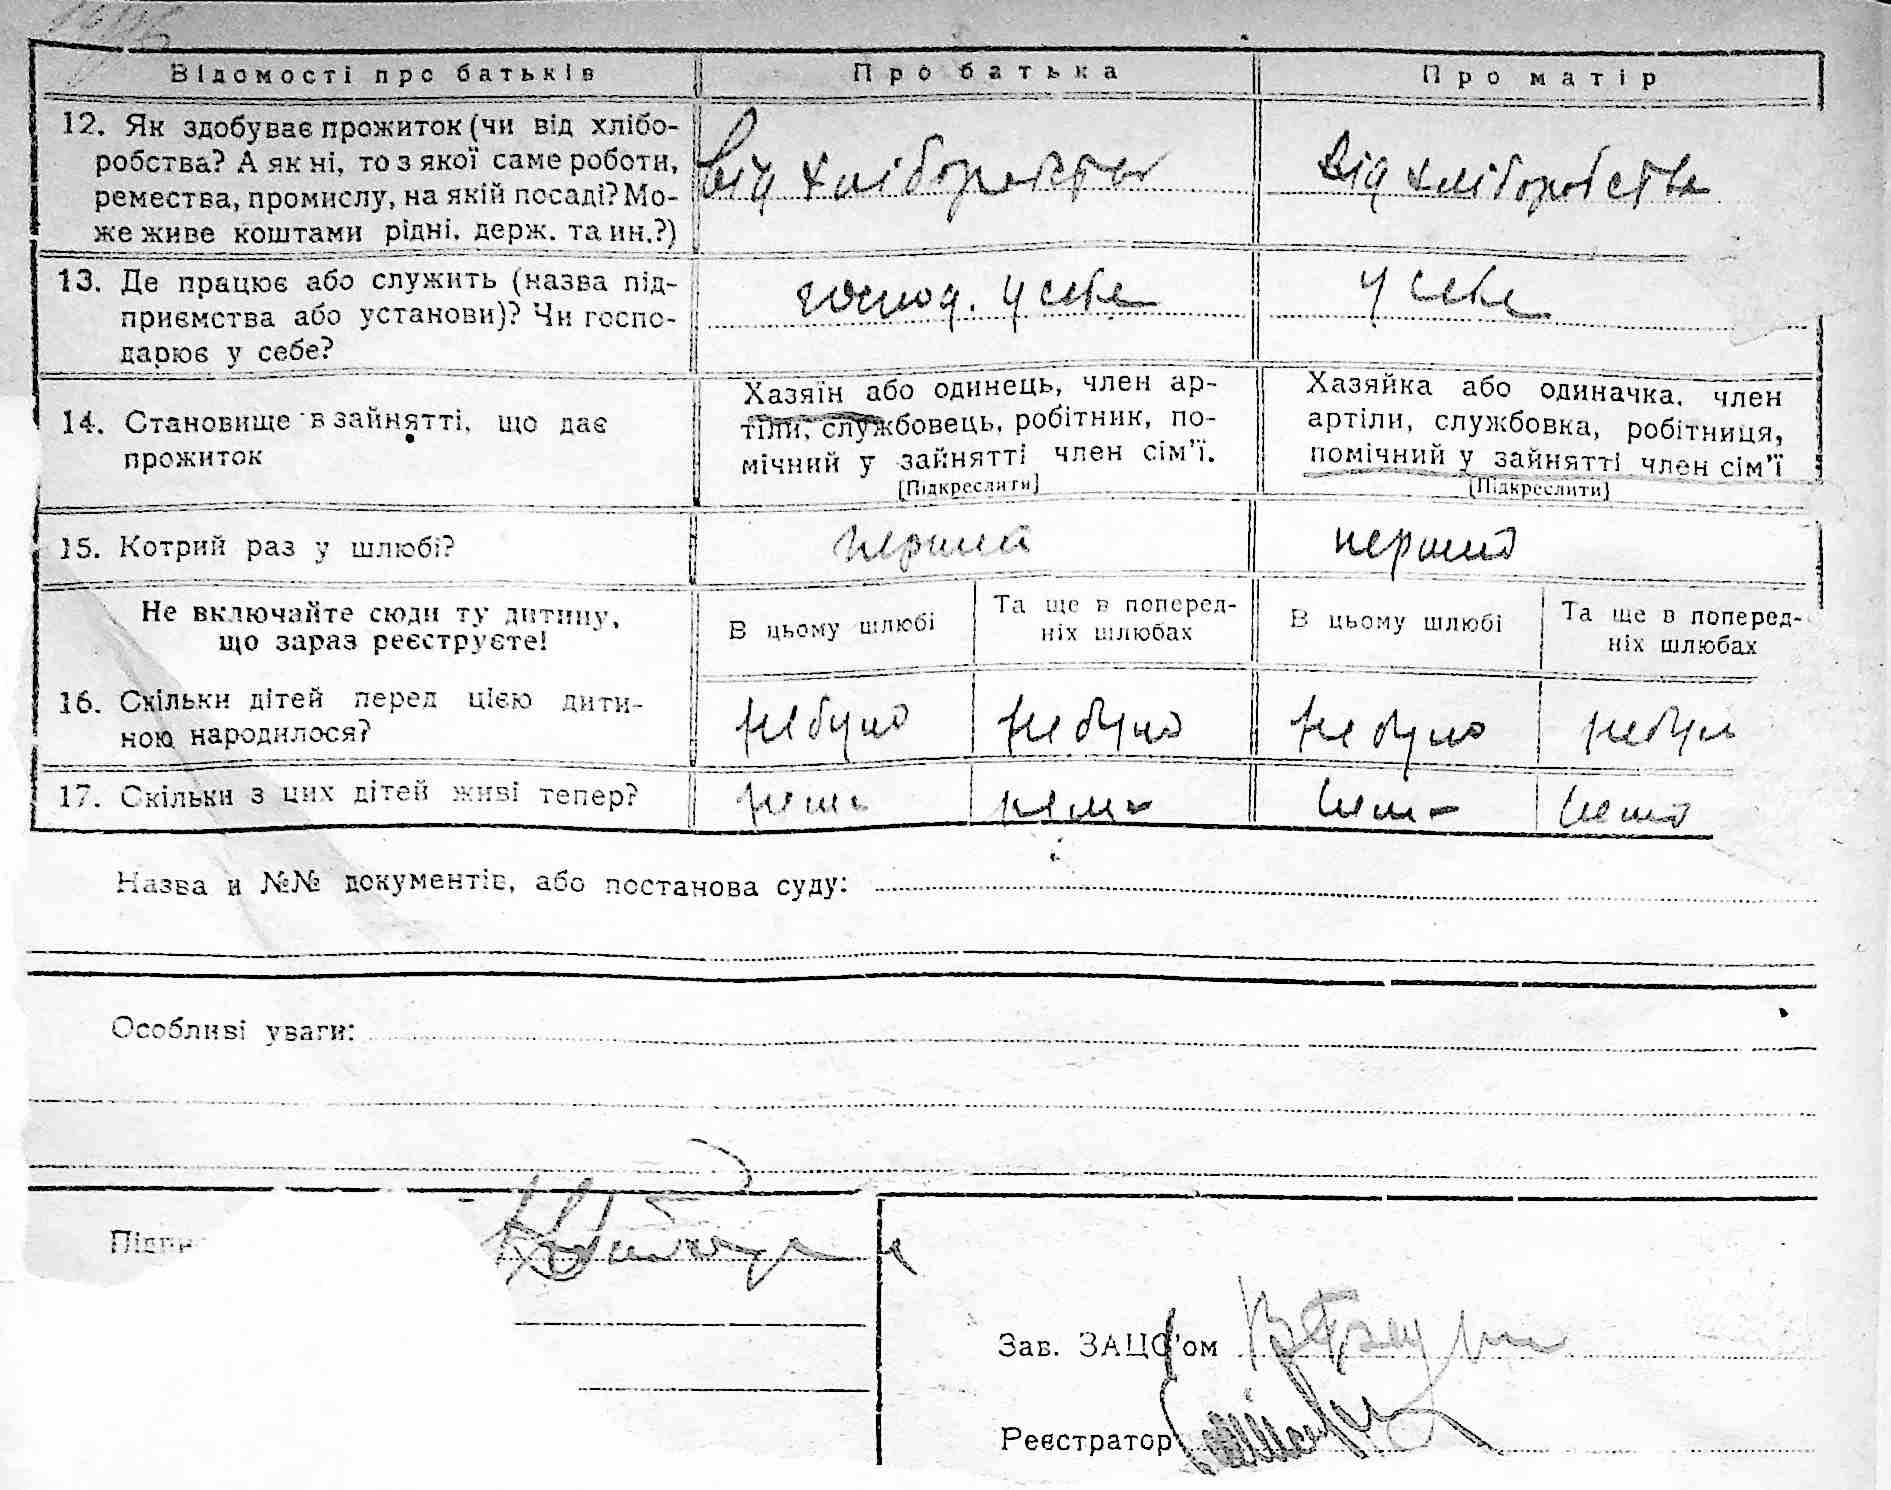 Відомості про батьків
Про батька
Про матір
12. Як здобуває прожиток (чи від хлібо-
робства? А як ні, то з якої саме роботи,
ремества, промислу, на якій посаді? Мо-
же живе коштами рідні, держ. та ин.?)
Від хліборобства
Від хліборобства
13. Де працює або служить (назва під-
приємства або установи)? Чи госпо-
дарює у себе?
господ. у себе
у себе
14. Становище в зайнятті, що дає
прожиток
Хазяїн або одинець, член ар-
тіли, службовець, робітник, по-
мічний у зайнятті член сім'ї.
[Підкреслити]
Хазяйка або одиначка, член
артіли, службовка, робітниця,
помічний у зайнятті член сім'ї
[Підкреслити]
15. Котрий раз у шлюбі?
перший
перший
Не включайте сюди ту дитину,
що зараз реєструєте!
В цьому шлюбі
Та ще в поперед-
ніх шлюбах
В цьому шлюбі
Та ще в поперед-
ніх шлюбах
16. Скільки дітей перед цією дити-
ною народилося?
не було
не було
не було
не було
17. Скільки з цих дітей живі тепер?
нема
нема
нема
нема
Назва и №№ документів, або постанова суду:
Особливі уваги:
Підпи
Зав. ЗАЦС'ом
Реєстратор